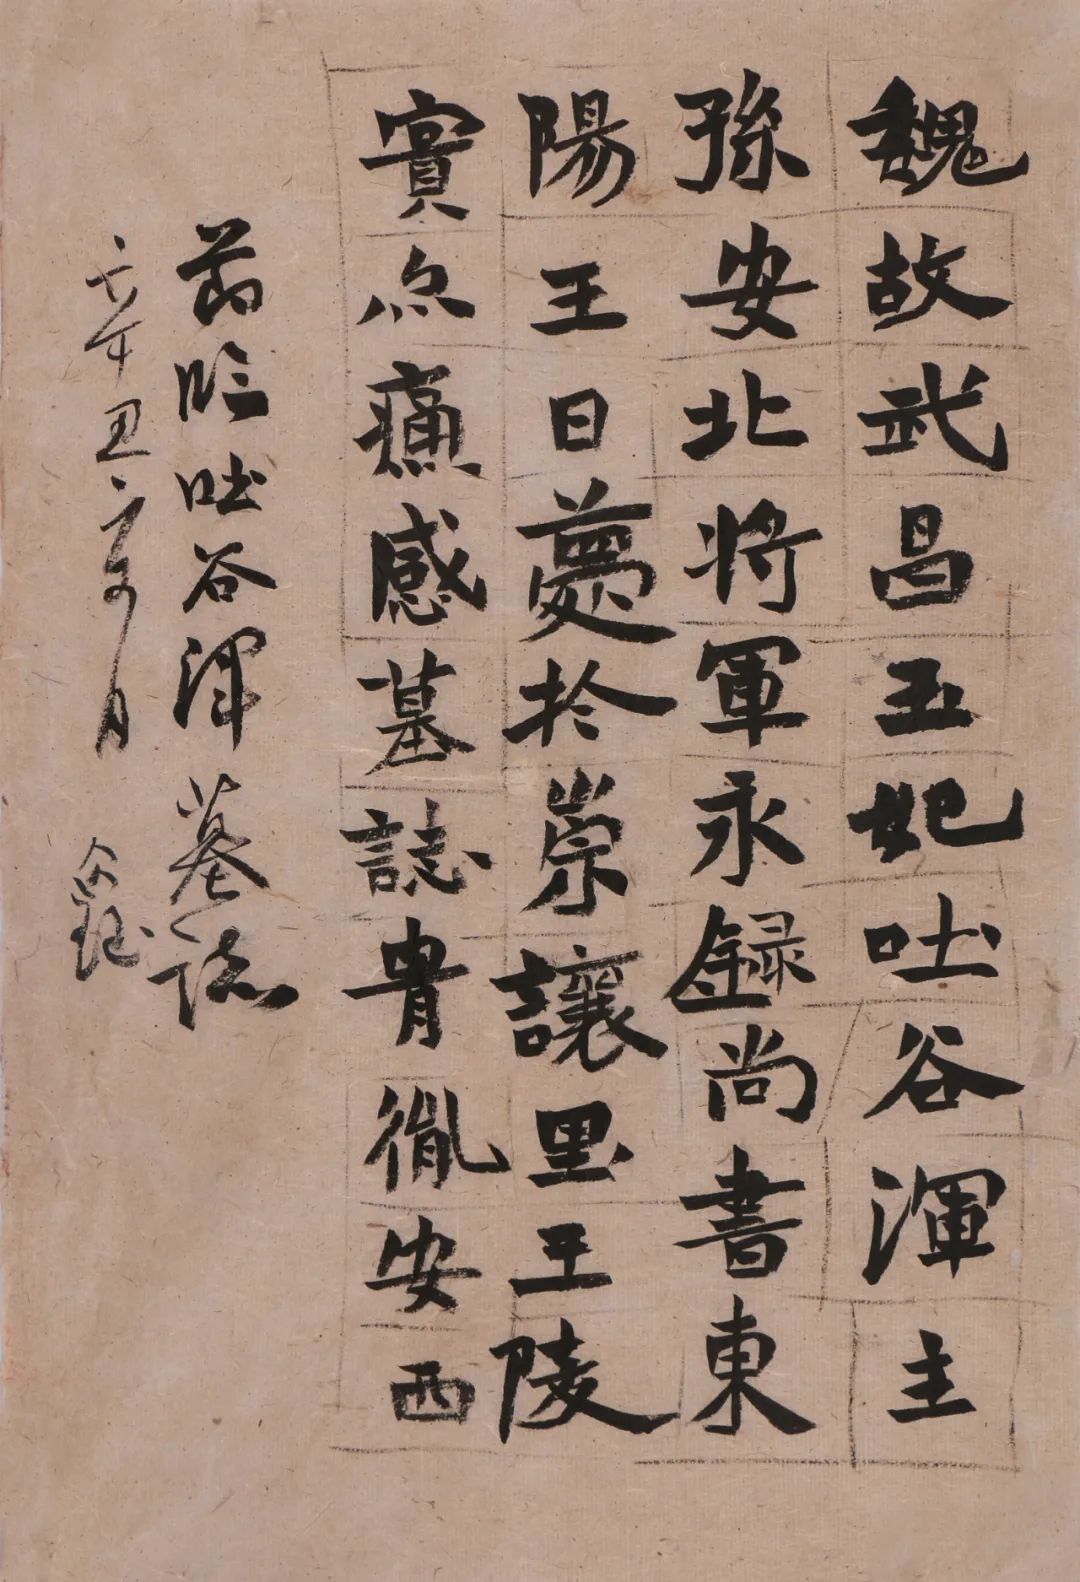 魏故武昌王妃吐谷渾主
孫安北将軍永録尚書東
陽王日薨於崇讓里王陵
實点痛感墓誌胄胤安西
莭临吐谷渾墓誌
辛丑夏月